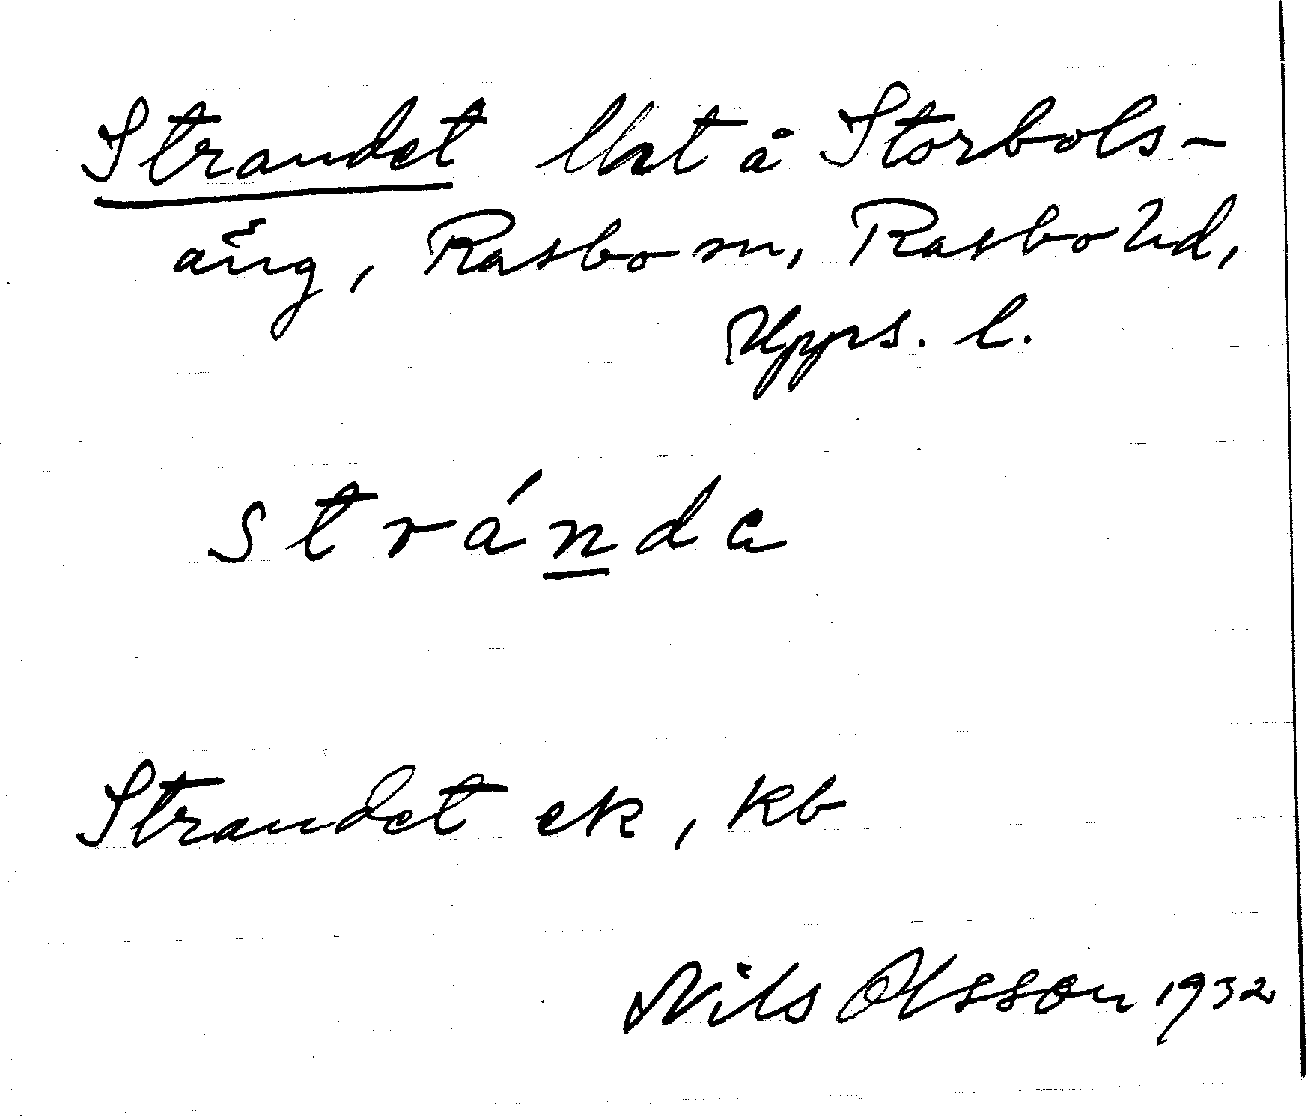 Strandet lht å Storbols-
äng, Rasbo sn, Rasbo hd,
Upps. l.
stránda
Strandet ek, kb
Nils Olsson 1932